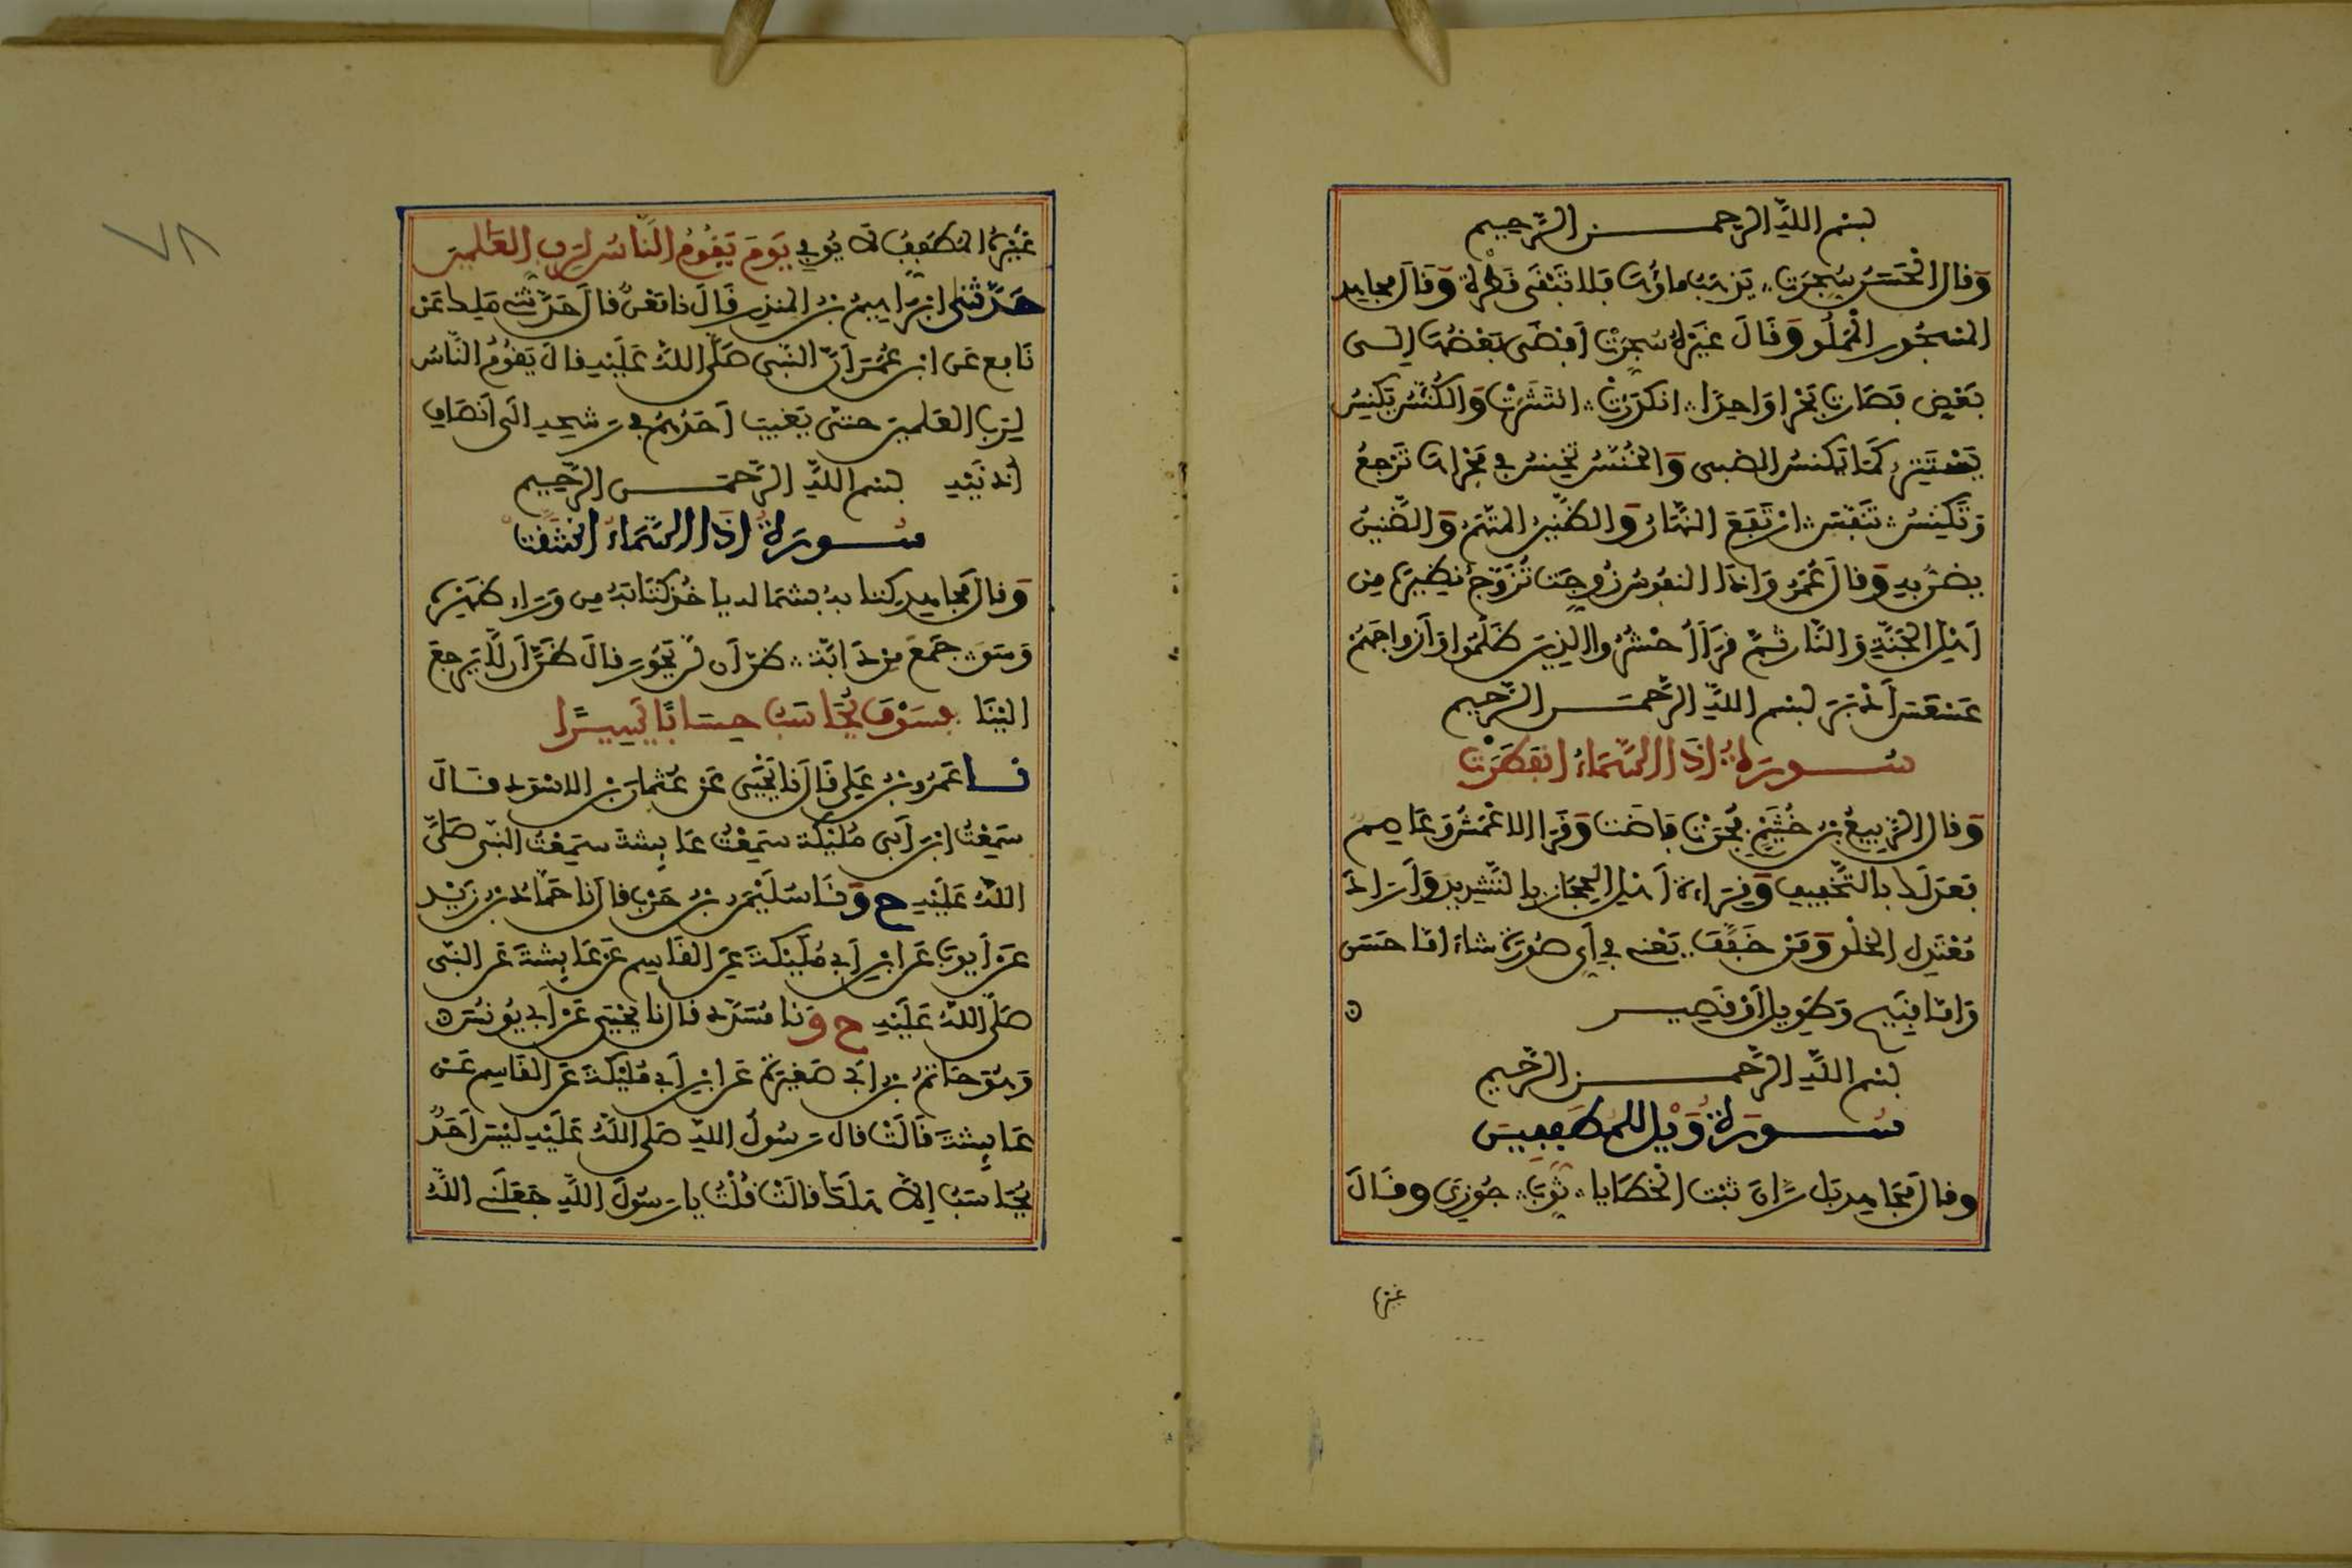 بسم الله الرحمن الرحيم
وَقال الْحَسَنُ سُجِرَت يَذهَبُ ماؤُها فَلا تَبْقَى قَطْرة وَقَالَ مجاهد
المسْجُور الْمَمْلُو وَقَالَ غَيْرُهُ سُجِرَتْ أَفْضَى بَعْضُهَا إلى
بَعْضٍ فَصَارت بَحْرا وَاحِدًا انكَدَرَتْ انتَثَرَتْ وَالْكُنَّسُ تَكْنِسُ
تَسْتَتِرُ كَمَا تَكْنسُ الضبى وَالْخُنَّسُ تخْنِسُ فِي مَجْرَاهَا تَرْجِعُ
وَتَكْنِسُ تَنَفَّسَ ارْتَفَعَ النَّهَارُ وَالظَّنِينُ المتَّهَمُ وَالضَّنِينُ
يضَنُّ بِهِ وَقالَ عُمَرُ وَإذَا النفُوسُ زُوِّجَت تُزَوَّجُ نظيرَهَا مِن
أَهْلِ الْجَنَّةِ وَالنَّار ثُمَّ قَرَأَ احْشُرُوا الذِينَ ظَلَمُوا وَأَزواجَهُمْ
عَسْعَسَ أَدْبَرَ بسم اللَّهِ الرَّحْمَن الرَّحِيم
سُورَةُ إذَا السَّمَاءُ انفَطَرَتْ
وَقال الرَّبِيعُ بن خُثَيْمٍ فُجِّرَتْ فَاضَت وَقَرَأ الاعْمَشُ وَعَاصم
فعَدَلَكَ بالتَّخْفِيف وَقِرَاءة أَهْلِ الحِجَازِ بالتَّشْدِيد وَأَرَادَ
مُعْتَدِل الخلْو وَمَنْ خَفَّفَ يَعْني في أيِ صُورَة شاءَ امَّا حَسَن
وَامَّا قَبِيح وَطَوِيل أَوْ قَصِيـر ه
بسم اللهِ الرَّحْمَن الرَّحِيم
سُورَةُ وَيْل للْمُطَفِّفِينَ
وقال مجَاهِد بَل رَّانَ ثَبْت الْخطَايا ثُوِّبَ جُوزِيَ وقَالَ
غيرها
٧٨
غَيْرُهُ الْمُطَفِّفُ لَا يُوفِي يَوْمَ يَقُومُ النَّاسُ لِرَبِّ العَالمِينَ
حَدَّثَنِي ابْرَاهِيمُ بْنُ المنذِرِ قَالَ نا مَعْنٌ قالَ حَدَّثَنِي مَلِك عَنْ
نَافِع عَن ابْنِ عُمَرَ أَنَّ النَّبِي صَلَّى اللهُ عَلَيْهِ قالَ يَقُومُ النَّاسُ
لِرَبِّ العَلَمِينَ حتى يَغِيبَ أَحَدُهُمْ فِي رَشْحِهِ الَى أَنْصَافِ
أُذنَيْهِ بسم اللهِ الرَّحْمَن الرَّحِيم
سُورَةُ إذَا السَّمَاءُ انْشَقَّت
وَقالَ مجَاهد كتابه بشماله ياخُذ كتَابَهُ مِن وَرَاء ظَهْرِهِ
وَسَق جَمَعَ مِنْ دَابَّة ظَنَّ أَن لَّن يَحُورَ قالَ ظَنَّ أَن لَّا يَرجعَ
إلَيْنَا فسَوْفَ يُحَاسَبُ حِسَابًا يَسِيرًا
نا عَمْرُو بن عَلِي قَالَ نا يَحْيَى عَن عُثمان بن الاسْوَد قَالَ
سَمِعْتُ ابْنَ أَبِي مُلَيْكَة سَمِعْتُ عَايِشَةَ سَمِعْتُ النَّبي صَلَّى
اللهُ عَلَيْهِ ح وَنَا سُلَيْمَن بن حَرْب قالَ نا حَمَّادُ بن زَيْد
عَنْ أَيوبَ عَن ابْنِ أَبِي مُلَيْكَةَ عَنِ القَاسِم عَنْ عَايِشَةَ عَنِ النَّبي
صَلَّى اللهُ عَلَيْهِ ح وَنا مُسَدَّد قالَ نا يَحْيَى عَنْ أَبِي يُونُسَ ه
وَهُوَ حَاتمُ بن أَبِي صَغِيرَة عَن ابْنِ أَبِي مُلَيْكَةَ عَن القَاسِم عَن
عَايِشَةَ قَالَتْ قالَ رَسُولُ اللهِ صَلى اللهُ عَلَيْهِ لَيْسَ أَحَدٌ
يُحَاسَبُ إلَّا هَلَكَ قالَتْ قُلْتُ يا رَسُولَ اللَّهِ جَعَلَنِي اللَّهُ